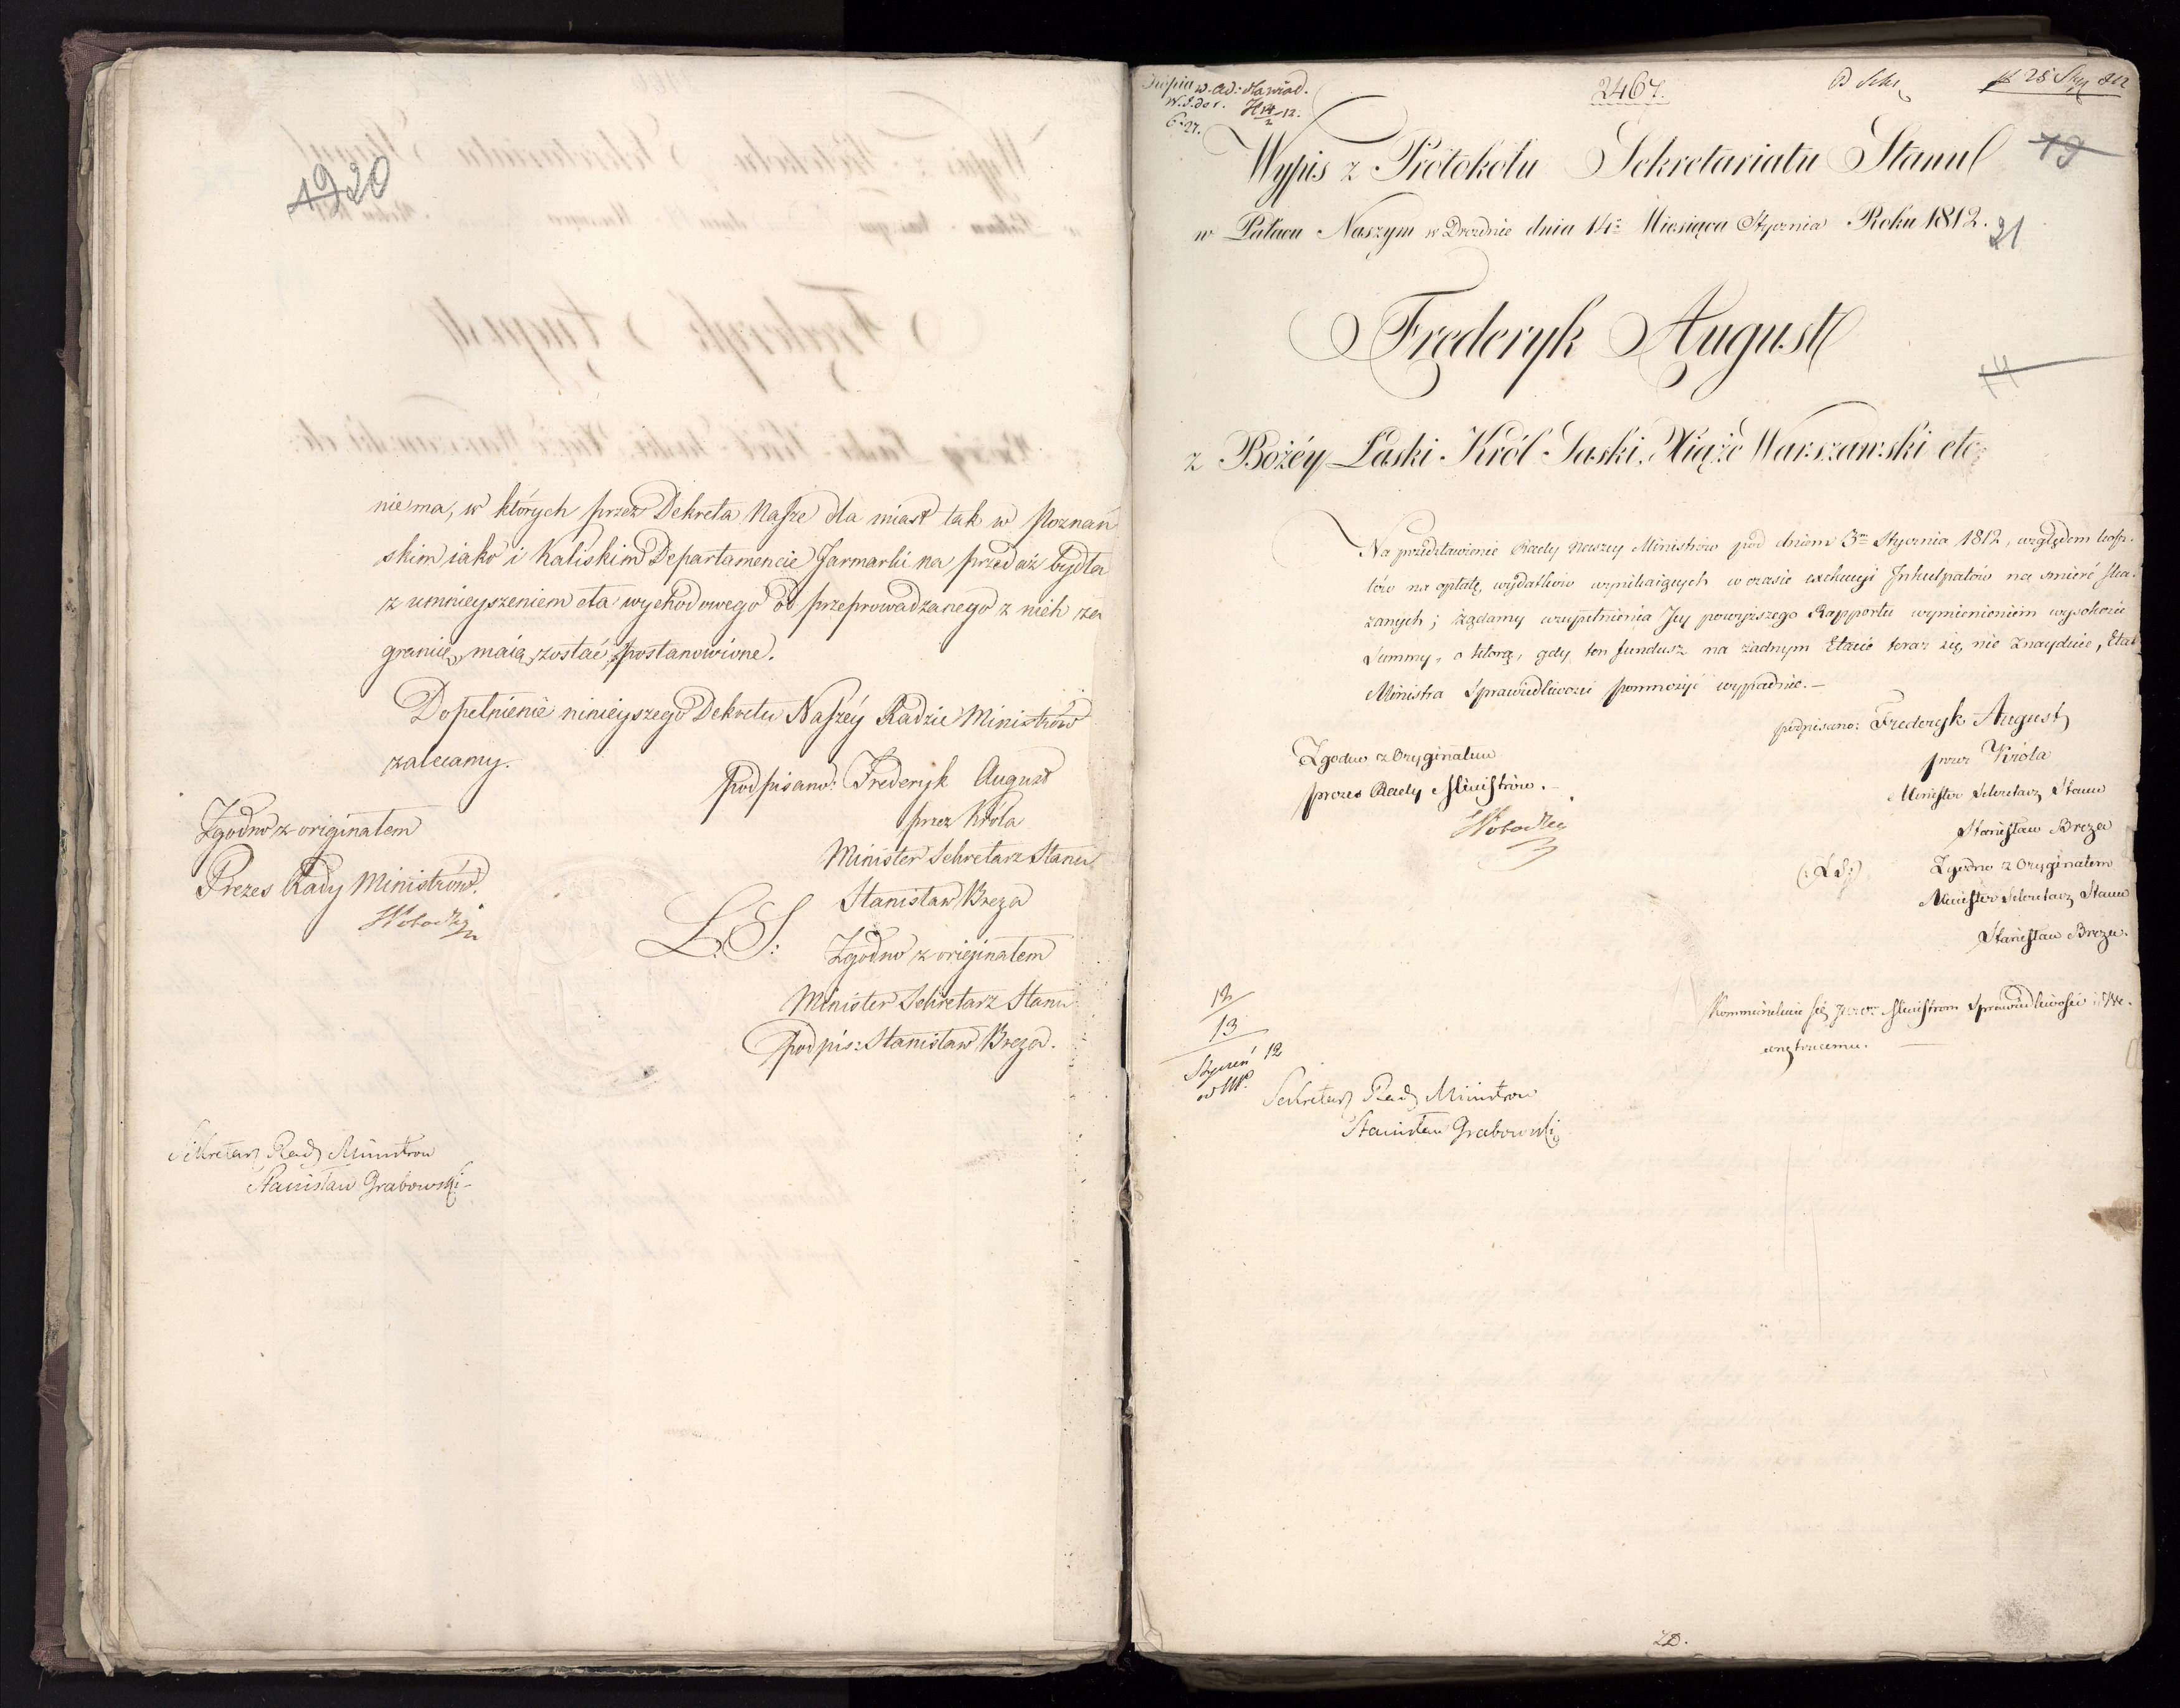 1920
nie ma, w których przez Dekreta Nasze dla miast tak w Poznań
skim iako i Kaliskim Departamencie Jarmarki na przedaż bydła
z umnieyszeniem cła wychodowego od przeprowadzanego z nich za
granicę, maią zostać postanowione.
Dopełnienie ninieyszego Dekretu Naszéy Radzie Ministrów
zalecamy.
podpisano: Frederyk August
przez Króla
Minister Sekretarz Stanu
Stanisław Breza
L. S:
Zgodno z originałem
Minister Sekretarz Stanu
podpis: Stanisław Breza.
Zgodno z originałem
Prezes Rady Ministrów.
Sekretarz Rady Ministrow
Stanisław Grabowski
2467.
19
Wypis z Protokołu Sekretariatu Stanu
w Pałacu Naszym w Dreznie dnia 14º Miesiąca Stycznia Roku 1812.
21
Frederyk August
z Bożéy Łaski Król Saski, Xiąże Warszawski etc:
Na przedstawienie Rady naszey Ministrów pod dniem 3m Stycznia 1812, względem kosz-
tów na opłatę wydatków wynikaiących w czasie exekucyi Inkulpatów na śmierć ska-
zanych; żądamy uzupełnienia Jey powyższego Rapportu wymienieniem wysokości
Summy, o którą, gdy ten fundusz na żadnym Etacie teraz się nie znayduie, Etat
Ministra Sprawiedliwości pomnożyć wypadnie. —
podpisano: Frederyk August
przez Króla
Minister Sekretarz Stanu
Stanisław Breza
(: L S :)
Zgodno z Oryginałem
Minister Sekretarz Stanu
Stanisław Breza.
Zgodno z Oryginałem
prezes Rady Ministrów. —
Kommunikuie się JWW. Ministrom Sprawiedliwości i We-
wnętrznemu. —
12
13
Styczeń 12
Sekretarz Rady Ministrow
Stanisław Grabowski